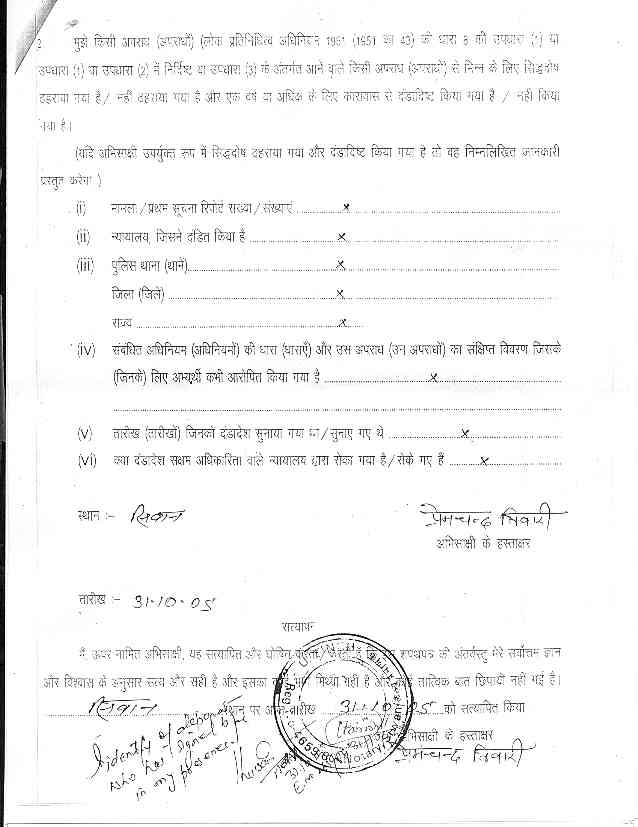 2. मुझे किसी अपराध (अपराधों) (लोक प्रतिनिधित्व अधिनियम 1951 (1951 का 43) की धारा 8 की उपधारा (1) या
उपधारा (1) या उपधारा (2) में निर्दिष्ट या उपधारा (3) के अंतर्गत आने वाले किसी अपराध (अपराधों) से भिन्न के लिए सिद्धदोष
ठहराया गया है / नहीं ठहराया गया है और एक वर्ष या अधिक के लिए कारावास से दंडादिष्ट किया गया है / नहीं किया
गया है।
(यदि अभिसाक्षी उपर्युक्त रूप में सिद्धदोष ठहराया गया और दंडादिष्ट किया गया है तो वह निम्नलिखित जानकारी
प्रस्तुत करेगा )
(i) मामला / प्रथम सूचना रिपोर्ट संख्या / संख्याएं ..... x .....
(ii) न्यायालय, जिसने दंडित किया है ..... x .....
(iii) पुलिस थाना (थानें) ..... x .....
जिला (जिले) ..... x .....
राज्य ..... x .....
(iv) संबंधित अधिनियम (अधिनियमों) की धारा (धाराएँ) और उस अपराध (उन अपराधों) का संक्षिप्त विवरण जिसके
(जिनके) लिए अभ्यर्थी कभी आरोपित किया गया है ..... x .....
(v) तारीख (तारीखों) जिनको दंडादेश सुनाया गया था / सुनाए गए थे ..... x .....
(vi) क्या दंडादेश सक्षम अधिकारिता वाले न्यायालय द्वारा रोका गया है / रोके गए हैं ..... x .....
स्थान :- सिवान
प्रेमचन्द तिवारी
अभिसाक्षी के हस्ताक्षर
तारीख :- 31-10-05
सत्यापन
मैं, ऊपर नामित अभिसाक्षी, यह सत्यापित और घोषित करता हूँ कि शपथपत्र की अंतर्वस्तु मेरे सर्वोत्तम ज्ञान
और विश्वास के अनुसार सत्य और सही है और इसका भाग मिथ्या नहीं है और कोई तात्विक बात छिपायी नहीं गई है।
सिवान स्थान पर आज तारीख 31-10-05 को सत्यापित किया
अभिसाक्षी के हस्ताक्षर
प्रेमचन्द तिवारी
I identify of
who has signed before
in my presence.